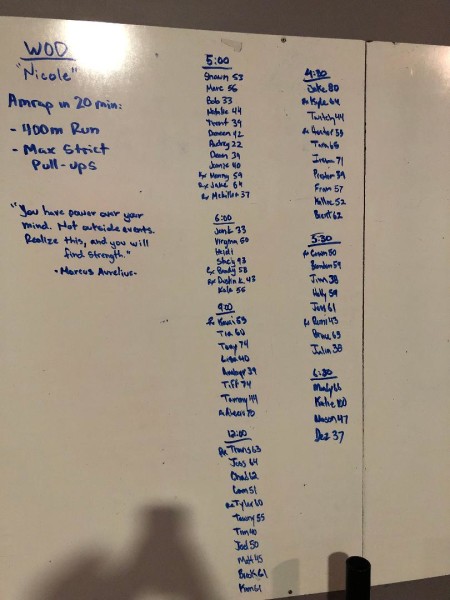 WOD
"Nicole"
Amrap in 20 min:
- 400m Run
- Max Strict
Pull-ups
"You have power over your
mind. Not outside events.
Realize this, and you will
find strength."
- Marcus Aurelius -
5:00
Shawn 53
Marc 56
Bob 33
Natalie 44
Trent 39
Doreen 42
Audrey 22
Dean 39
Jamie 40
Rx Manny 59
Rx Jake 64
Rx 37
6:00
Jen L 33
Virginia 60
Heidi
Stacy 93
Rx Brady 58
Rx Dustin K. 43
Kala 56
9:00
Rx 53
Tia 60
Tony 74
Lisa 40
Amber 39
Tiff 74
Tammy 44
Rx Alexis 70
12:00
Rx 63
Jess 64
Chad 62
Cam 51
Rx Tyler 60
Tawny 55
Tim 40
Jod 50
Matt 45
Brock 61
Kim 61
4:30
Jake 80
Rx Kyle 64
44
Rx Hunter 58
Tara 65
71
Preston 39
Fran 57
52
Brent 62
5:30
Rx 50
Brandon 59
Jim 38
Holly 59
Jess 61
Rx 43
63
Julia 38
6:30
66
Katie 100
Mason 47
Dez 37